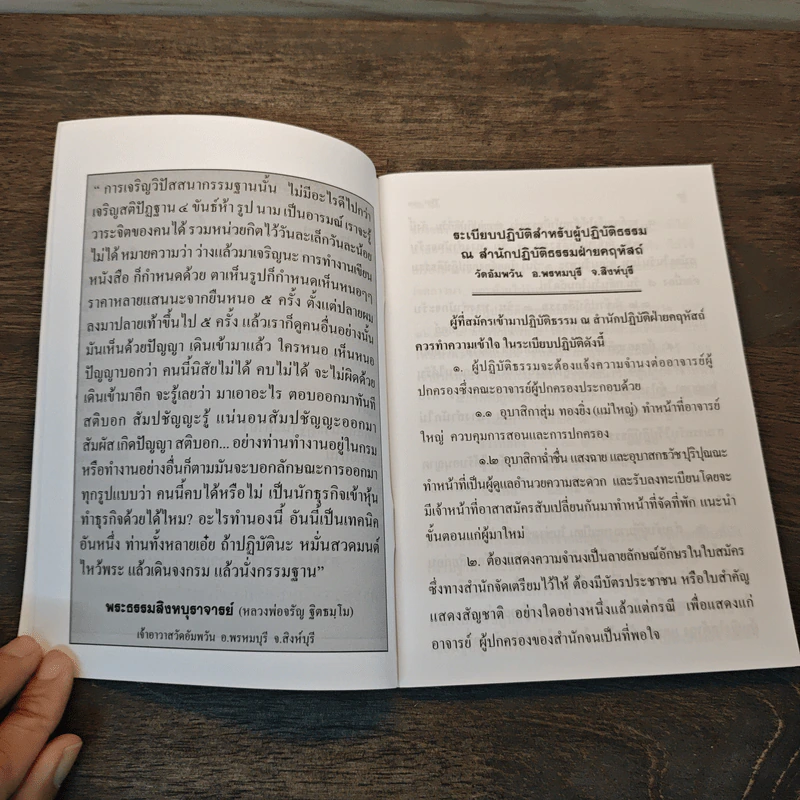 “ การเจริญวิปัสสนากรรมฐานนั้น ไม่มีอะไรดีไปกว่า
เจริญสติปัฏฐาน ๔ ขันธ์ห้า รูป นาม เป็นอารมณ์ เราจะรู้
วาระจิตของคนได้ รวมหน่วยกิตไว้วันละเล็กวันละน้อย
ไม่ได้ หมายความว่า ว่างแล้วมาเจริญนะ การทำงานเขียน
หนังสือ ก็กำหนดด้วย ตาเห็นรูปก็กำหนดเห็นหนอๆๆ
ราคาหลายแสนนะจากยืนหนอ ๕ ครั้ง ตั้งแต่ปลายผม
ลงมาปลายเท้าขึ้นไป ๕ ครั้ง แล้วเราก็ดูคนอื่นอย่างนั้น
มันเห็นด้วยปัญญา เดินเข้ามาแล้ว ใครหนอ เห็นหนอ
ปัญญาบอกว่า คนนี้นิสัยไม่ได้ คบไม่ได้ จะไม่ผิดด้วย
เดินเข้ามาอีก จะรู้เลยว่า มาเอาอะไร ตอบออกมาทันที
สติบอก สัมปชัญญะรู้ แน่นอนสัมปชัญญะออกมา
สัมผัส เกิดปัญญา สติบอก... อย่างท่านทำงานอยู่ในกรม
หรือทำงานอย่างอื่นก็ตามมันจะบอกลักษณะการออกมา
ทุกรูปแบบว่า คนนี้คบได้หรือไม่ เป็นนักธุรกิจเข้าหุ้น
ทำธุรกิจด้วยได้ไหม? อะไรทำนองนี้ อันนี้เป็นเทคนิค
อันหนึ่ง ท่านทั้งหลายเอ๋ย ถ้าปฏิบัตินะ หมั่นสวดมนต์
ไหว้พระ แล้วเดินจงกรม แล้วนั่งกรรมฐาน”
พระธรรมสิงหบุราจารย์ (หลวงพ่อจรัญ ฐิตธมฺโม)
เจ้าอาวาสวัดอัมพวัน อ.พรหมบุรี จ.สิงห์บุรี
ระเบียบปฏิบัติสำหรับผู้ปฏิบัติธรรม
ณ สำนักปฏิบัติธรรมฝ่ายคฤหัสถ์
วัดอัมพวัน อ.พรหมบุรี จ.สิงห์บุรี
ผู้ที่สมัครเข้ามาปฏิบัติธรรม ณ สำนักปฏิบัติฝ่ายคฤหัสถ์
ควรทำความเข้าใจ ในระเบียบปฏิบัติดังนี้
๑. ผู้ปฏิบัติธรรมจะต้องแจ้งความจำนงต่ออาจารย์ผู้
ปกครองซึ่งคณะอาจารย์ผู้ปกครองประกอบด้วย
๑.๑ อุบาสิกาสุ่ม ทองยิ่ง (แม่ใหญ่) ทำหน้าที่อาจารย์
ใหญ่ ควบคุมการสอนและการปกครอง
๑.๒ อุบาสิกาฉ่ำชื่น แสงฉาย และอุบาสกธวัชปุริปุณณะ
ทำหน้าที่เป็นผู้ดูแลอำนวยความสะดวก และรับลงทะเบียนโดยจะ
มีเจ้าหน้าที่อาสาสมัครสับเปลี่ยนกันมาทำหน้าที่จัดที่พัก แนะนำ
ขั้นตอนแก่ผู้มาใหม่
๒. ต้องแสดงความจำนงเป็นลายลักษณ์อักษรในใบสมัคร
ซึ่งทางสำนักจัดเตรียมไว้ให้ ต้องมีบัตรประชาชน หรือใบสำคัญ
แสดงสัญชาติ อย่างใดอย่างหนึ่งแล้วแต่กรณี เพื่อแสดงแก่
อาจารย์ ผู้ปกครองของสำนักจนเป็นที่พอใจ